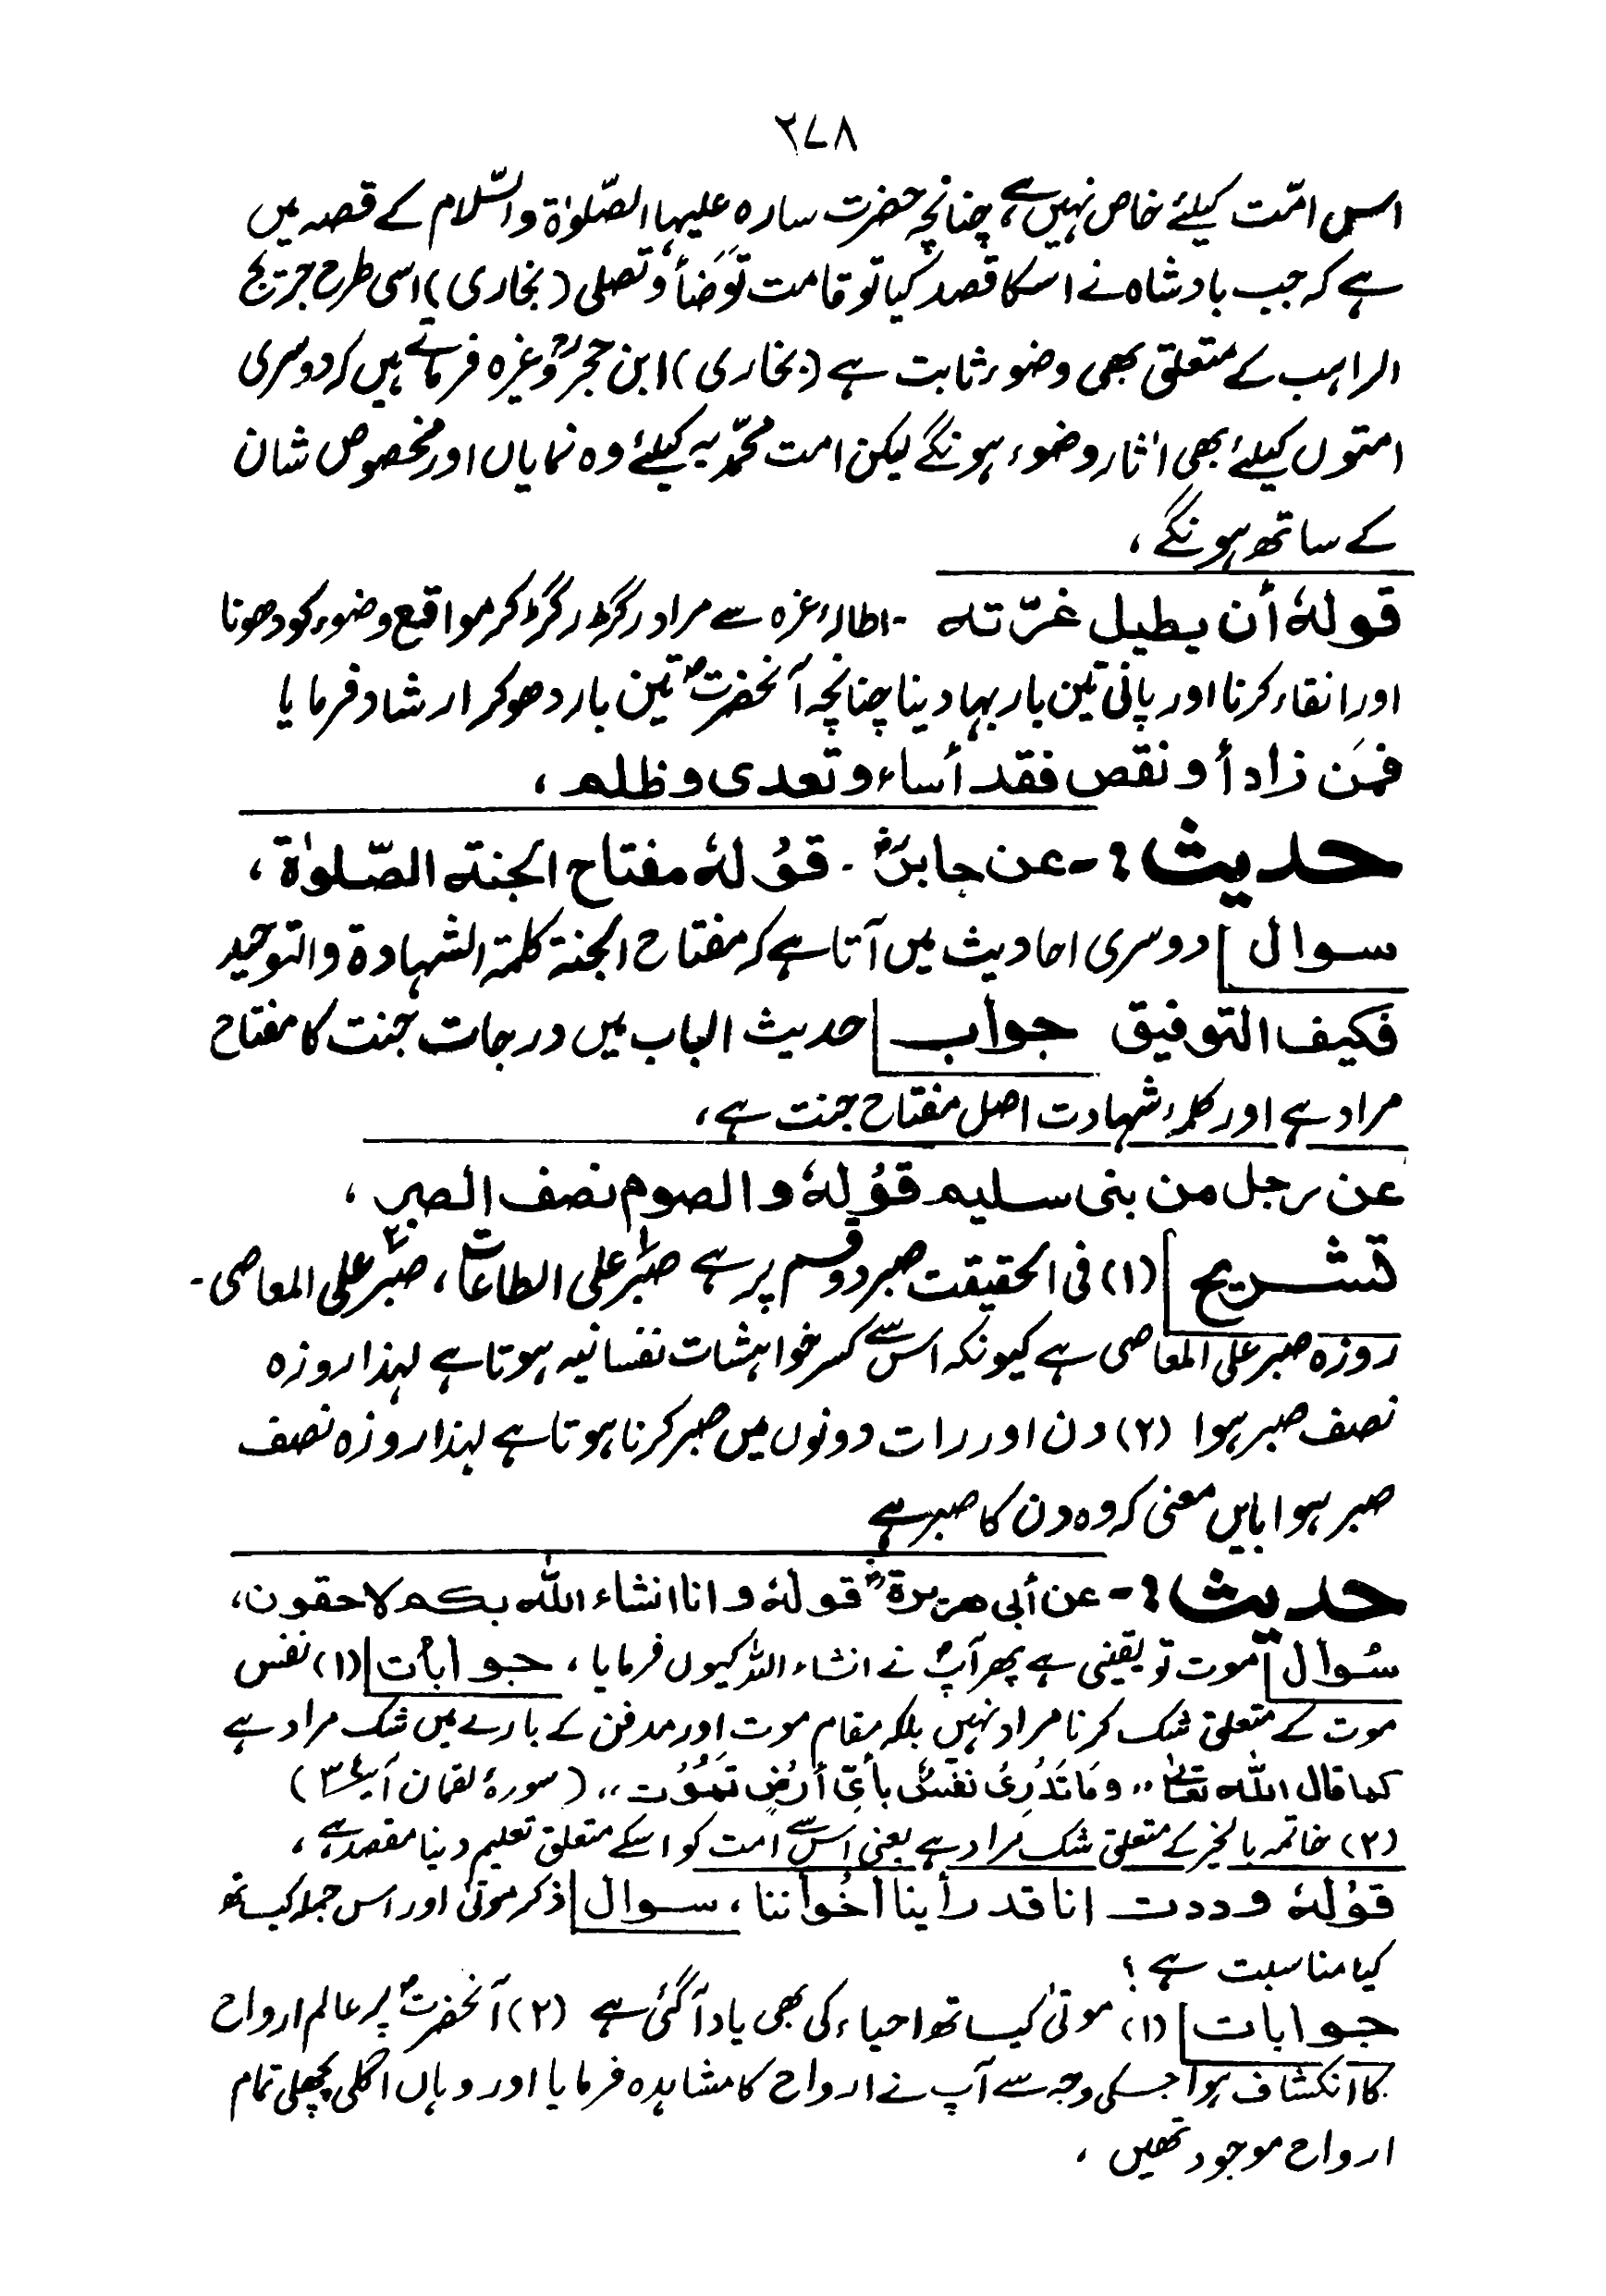 ۲۷۸
اس امّت کیلئے خاص نہیں ہے، چنانچہ حضرت سارہ علیہا الصّلوٰۃ والسّلام کے قصہ میں
ہے کہ جب بادشاہ نے اسکا قصد کیا تو قامت تَوَضَأ وتصلی (بخاری) اسی طرح جریج
الراہب کے متعلق بھی وضوء ثابت ہے (بخاری) ابن حجرؒ وغیرہ فرماتے ہیں کہ دوسری
امتوں کیلئے بھی اٰثار وضوء ہونگے لیکن امت محمّدیہ کیلئے وہ نمایاں اور مخصوص شان
کے ساتھ ہونگے،
قولهٗ أن یطیل غرّته - اطالۂ غرہ سے مراد رگڑ رگڑ کر مواقع وضوء کو دھونا
اور انقاء کرنا اور پانی تین بار بہا دینا چنانچہ آنحضرتؐ تین بار دھو کر ارشاد فرمایا
فمَن زاد أو نقص فقد أساء وتعدی وظلم،
حدیث :- عن جابرؓ - قوُلهٗ مفتاح الجنته الصّلوٰة،
سوال] دوسری احادیث میں آتا ہے کہ مفتاح الجنۃ کلمۃ الشہادۃ والتوحید
فکیف التوفیق جواب] حدیث الباب میں درجات جنت کا مفتاح
مراد ہے اور کلمۂ شہادت اصل مفتاح جنت ہے،
عن رجل من بنی سلیم قوُلهٗ والصوم نصف الصبر،
تشریح] (۱) فی الحقیقت صبر دو قسم پر ہے صبؔر علی الطاعات، صبؔر علی المعاصی -
روزہ صبر علی المعاصی ہے کیونکہ اس سے کسر خواہشات نفسانیہ ہوتا ہے لہذا روزہ
نصف صبر ہوا (۲) دن اور رات دونوں میں صبر کرنا ہوتا ہے لہذا روزہ نصف
صبر ہوا بایں معنی کہ وہ دن کا صبر ہے
حدیث :- عن أبی ھریرةؓ قولهٗ وانا انشاء اللّٰه بکم لاحقون،
سُوال] موت تو یقینی ہے پھر آپؐ نے انشاء اللہ کیوں فرمایا، جوابات] (۱) نفس
موت کے متعلق شک کرنا مراد نہیں بلکہ مقام موت اور مدفن کے بارے میں شک مراد ہے
کما قال اللّٰه تعالٰی ,, ومَا تَدُرِیُ نفسٌ بأیّ أرُضٍ تَمُوُت ,, (سورۂ لقمان آیت ۳۴)
(۲) خاتمہ بالخیر کے متعلق شک مراد ہے یعنی اس سے امت کو اسکے متعلق تعلیم دینا مقصد ہے،
قوُلهٗ وددت انا قد رأینا اخُواننا، سوال] ذکر موتیٰ اور اس جملہ کیساتھ
کیا مناسبت ہے ؟
جوابات] (۱) موتیٰ کیساتھ احیاء کی بھی یاد آگئی ہے (۲) آنحضرتؐ پر عالم ارواح
کا انکشاف ہوا جسکی وجہ سے آپ نے ارواح کا مشاہدہ فرمایا اور وہاں اگلی پچھلی تمام
ارواح موجود تھیں،